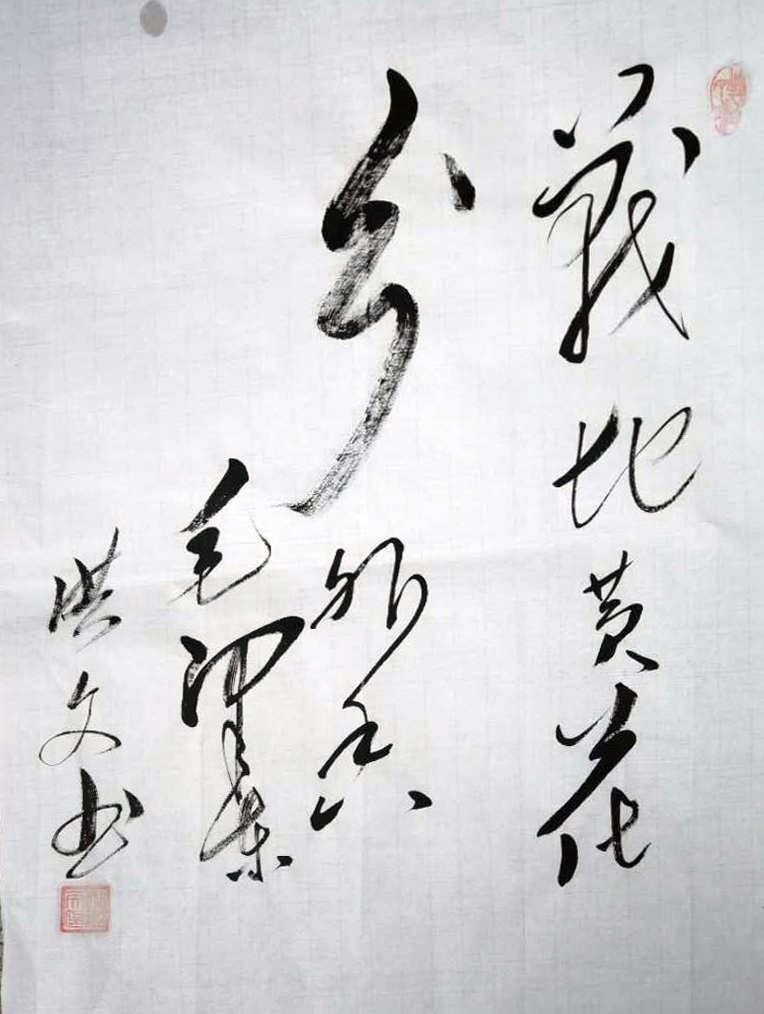 戰地黄花
分外香
毛泽东
洪文书